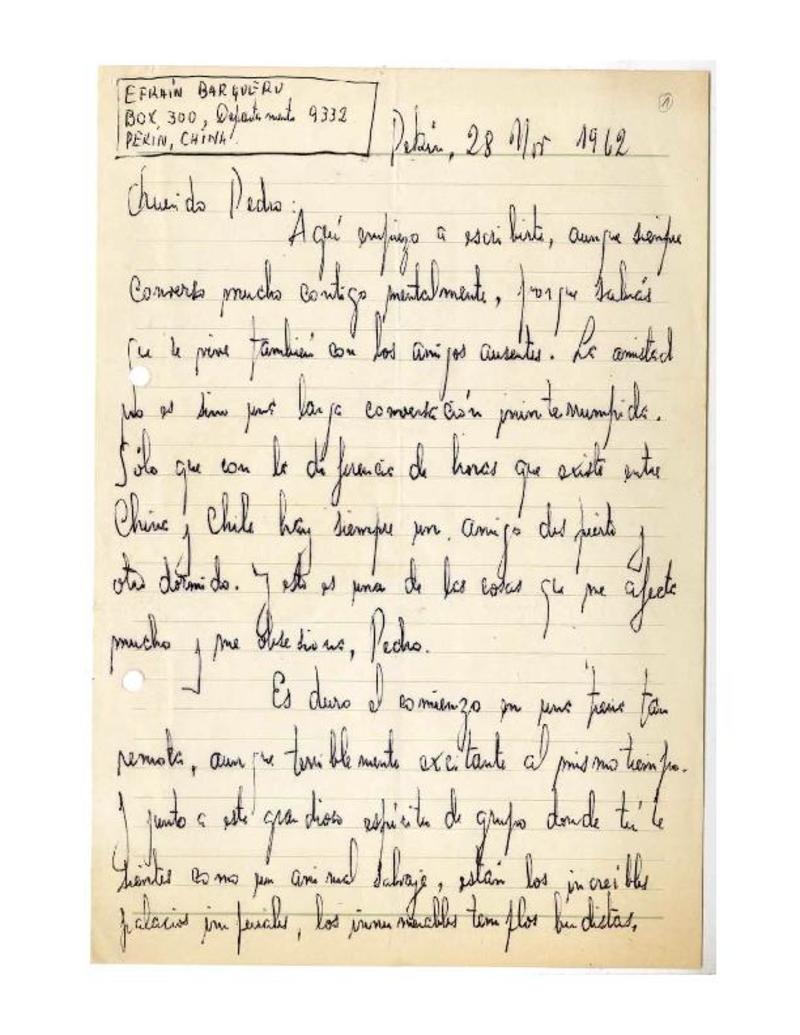 ①
EFRAÍN BARQUERO
BOX 300, Departamento 9332
PEKÍN, CHINA.
Pekín, 28 Nov 1962
Querido Pedro:
Aquí empiezo a escribirte, aunque siempre
converso mucho contigo mentalmente, porque sabrás
que se vive también con los amigos ausentes. La amistad
no es sino una larga conversación ininterrumpida.
Sólo que con la diferencia de horas que existe entre
China y Chile hay siempre un amigo despierto y
otro dormido. Y esto es una de las cosas que me afecta
mucho y me obsesiona, Pedro.
Es duro el comienzo en una tierra tan
remota, aunque terriblemente excitante al mismo tiempo.
Y junto a este grandioso espíritu de grupo donde tú te
sientes como un animal salvaje, están los increíbles
palacios imperiales, los innumerables templos budistas,